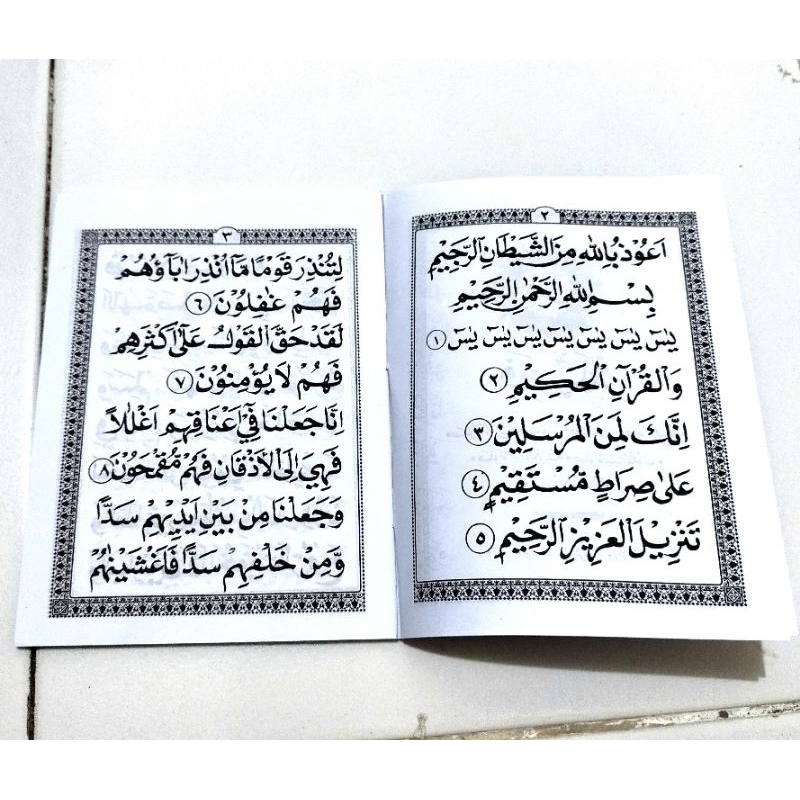 ٢
اَعُوْذُ بِاللهِ مِنَ الشَّيْطَانِ الرَّجِيْمِ
بِسْمِ اللهِ الرَّحْمٰنِ الرَّحِيْمِ
يٰسٓ يٰسٓ يٰسٓ يٰسٓ يٰسٓ يٰسٓ يٰسٓ ١
وَالْقُرْآنِ الْحَكِيْمِ ٢
اِنَّكَ لَمِنَ الْمُرْسَلِيْنَ ٣
عَلٰى صِرَاطٍ مُسْتَقِيْمٍ ٤
تَنْزِيْلَ الْعَزِيْزِ الرَّحِيْمِ ٥
٣
لِتُنْذِرَ قَوْمًا مَّآ اُنْذِرَ اٰبَآؤُهُمْ
فَهُمْ غٰفِلُوْنَ ٦
لَقَدْ حَقَّ الْقَوْلُ عَلٰٓى اَكْثَرِهِمْ
فَهُمْ لَا يُؤْمِنُوْنَ ٧
اِنَّا جَعَلْنَا فِيْٓ اَعْنَاقِهِمْ اَغْلٰلًا
فَهِيَ اِلَى الْاَذْقَانِ فَهُمْ مُّقْمَحُوْنَ ٨
وَجَعَلْنَا مِنْ بَيْنِ اَيْدِيْهِمْ سَدًّا
وَّمِنْ خَلْفِهِمْ سَدًّا فَاَغْشَيْنٰهُمْ